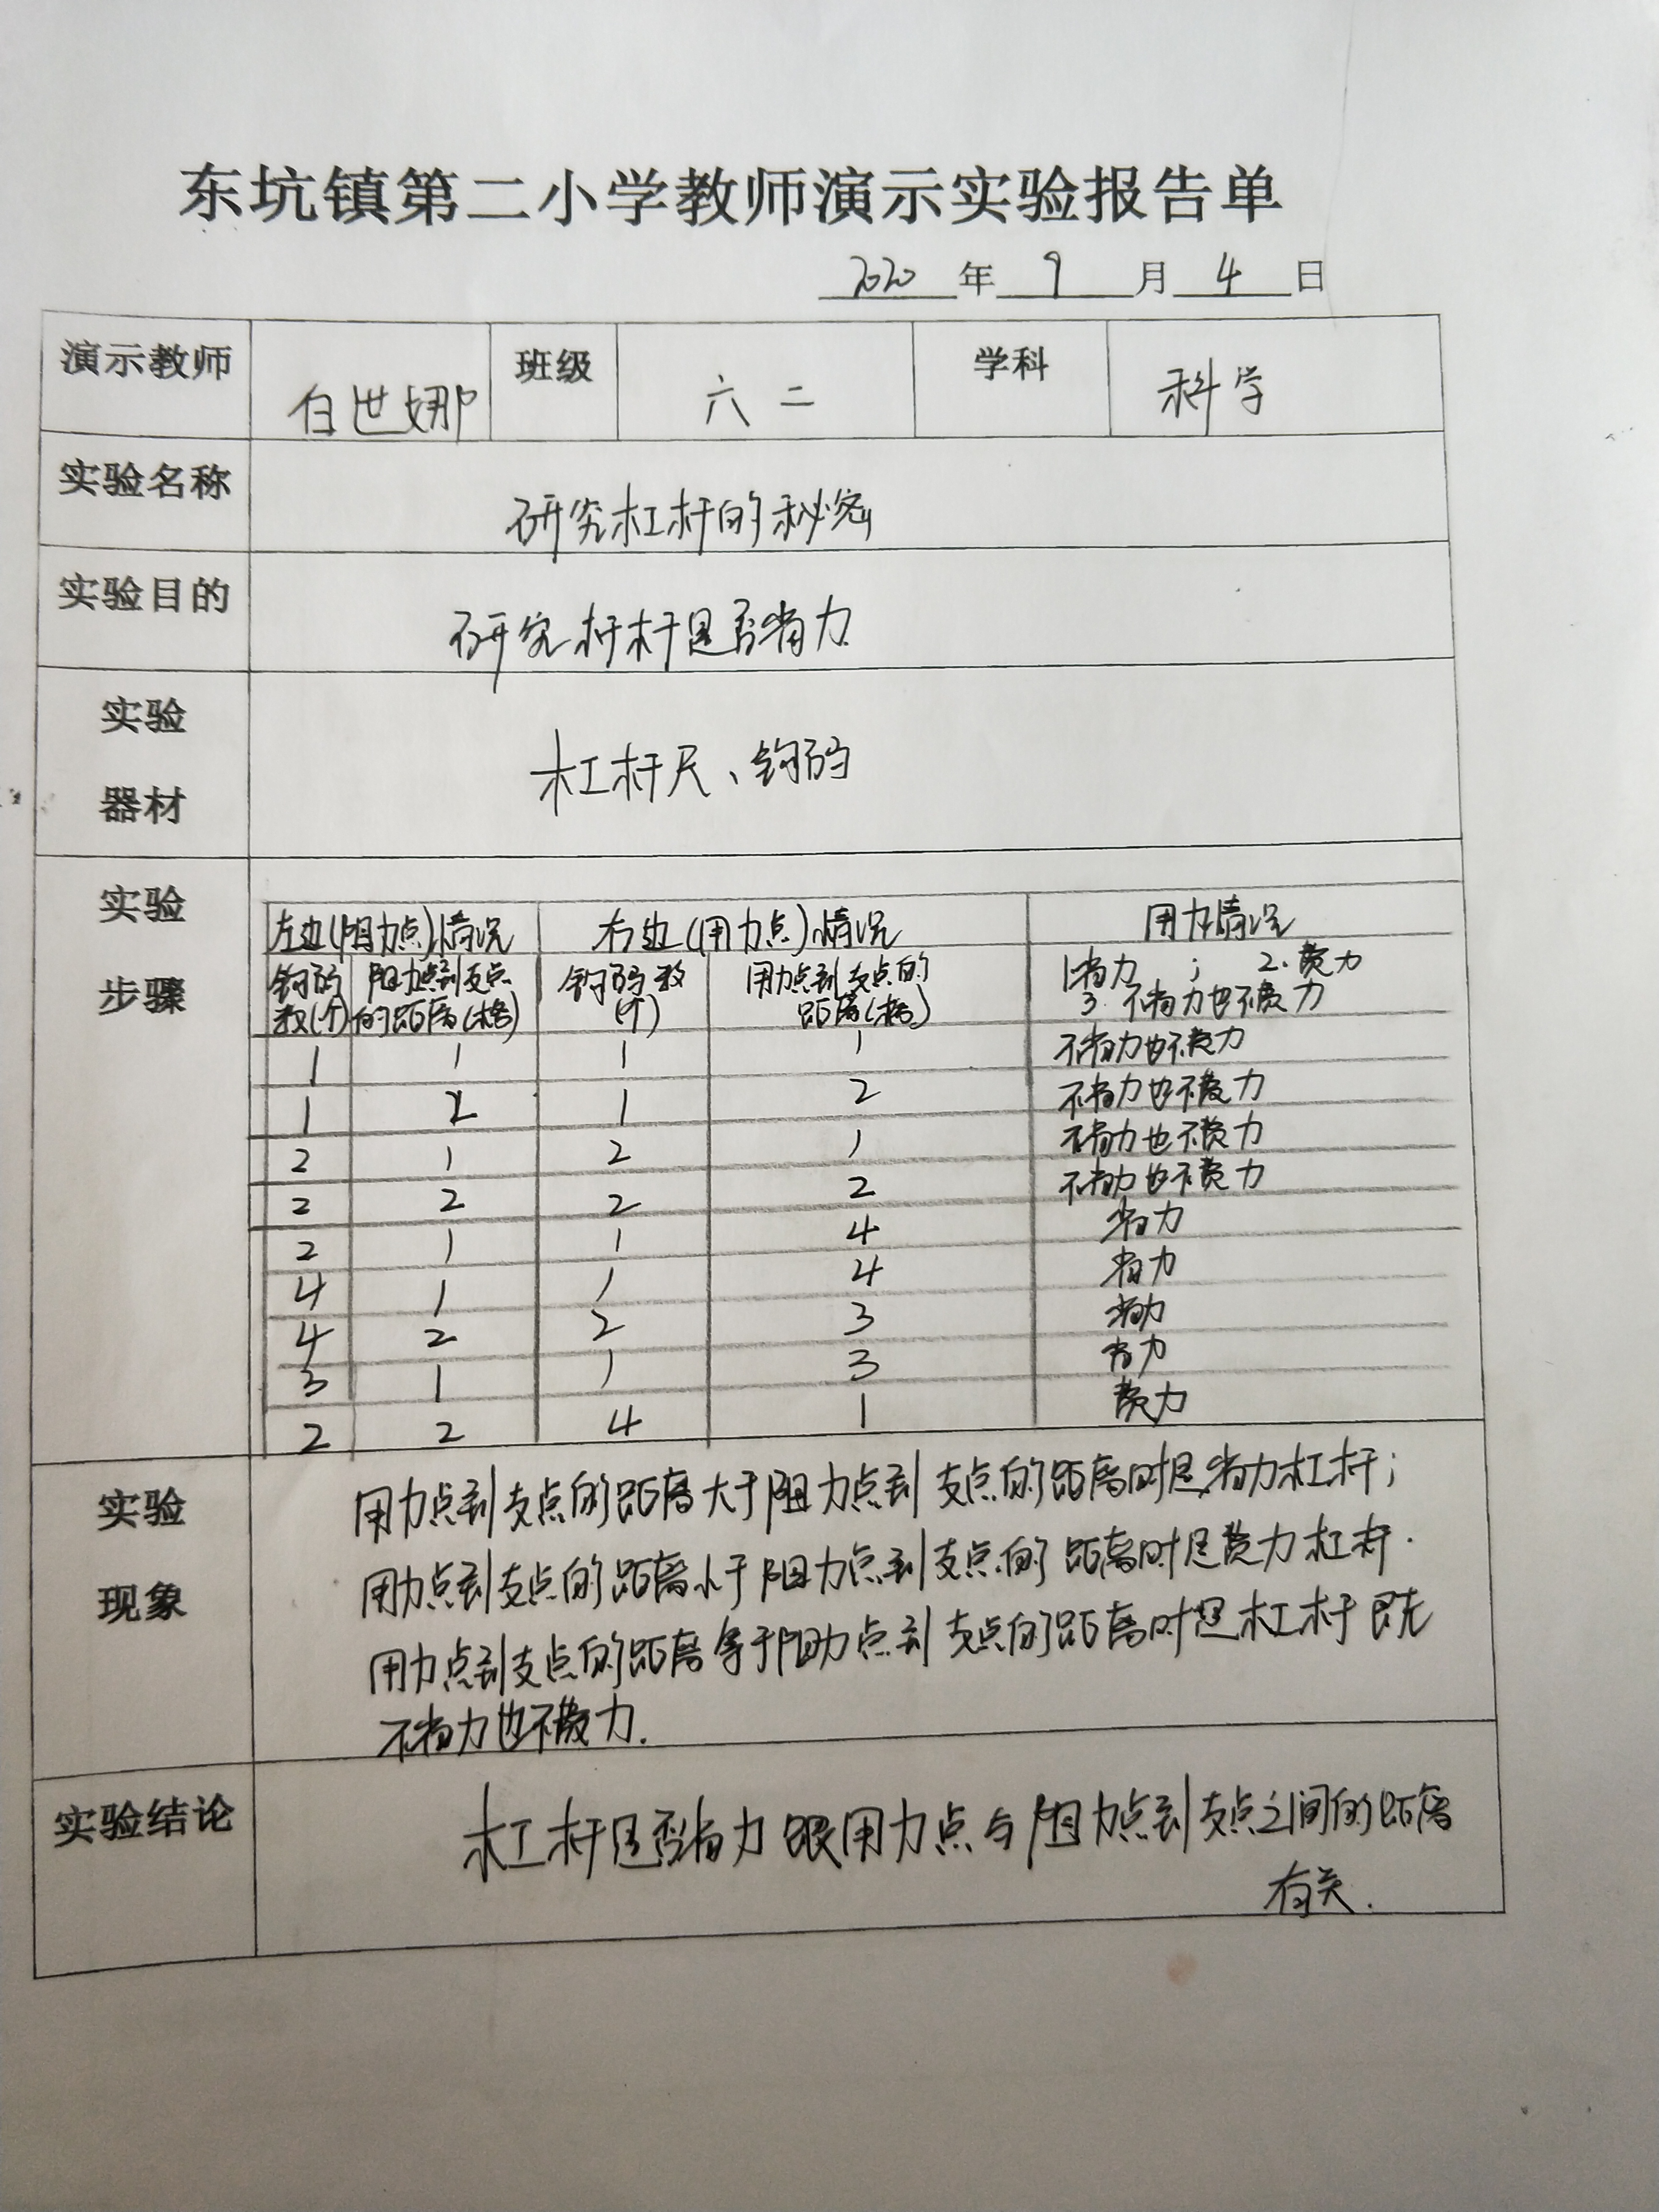 东坑镇第二小学教师演示实验报告单
2020 年 9 月 4 日
演示教师 白世娜 班级 六二 学科 科学
实验名称 研究杠杆的秘密
实验目的 研究杆杆是否省力
实验
器材
杠杆尺、钩码
实验
步骤
左边(阻力点)情况 右边(用力点)情况 用力情况
钩码数(个) 阻力点到支点的距离(格) 钩码数(个) 用力点到支点的距离(格) 1省力 ; 2.费力 3 不省力也不费力
1 1 1 1 不省力也不费力
1 2 1 2 不省力也不费力
2 1 2 1 不省力也不费力
2 2 2 2 不省力也不费力
2 1 1 4 省力
4 1 1 4 省力
4 2 2 3 省力
3 1 1 3 省力
2 2 4 1 费力
实验
现象
用力点到支点的距离大于阻力点到支点的距离时是省力杠杆;
用力点到支点的距离小于阻力点到支点的距离时是费力杠杆.
用力点到支点的距离等于阻力点到支点的距离时是杠杆既
不省力也不费力.
实验结论 杠杆是否省力跟用力点与阻力点到支点之间的距离
有关.